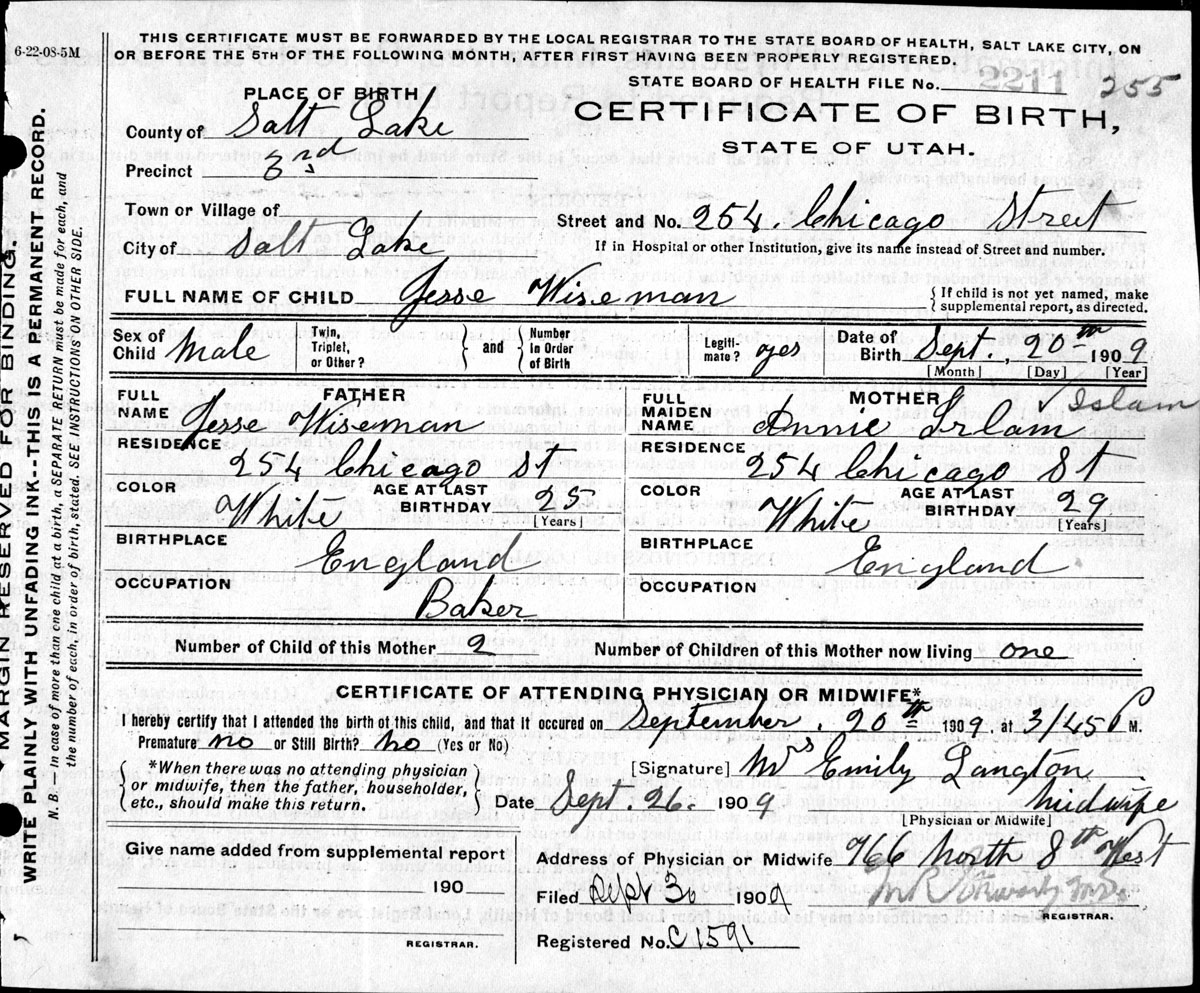 6-22-08-5M
THIS CERTIFICATE MUST BE FORWARDED BY THE LOCAL REGISTRAR TO THE STATE BOARD OF HEALTH, SALT LAKE CITY, ON
OR BEFORE THE 5TH OF THE FOLLOWING MONTH, AFTER FIRST HAVING BEEN PROPERLY REGISTERED.
STATE BOARD OF HEALTH FILE No. 2211 255
PLACE OF BIRTH
CERTIFICATE OF BIRTH,
STATE OF UTAH.
County of Salt Lake
Precinct 3rd
Town or Village of
Street and No. 254. Chicago Street
City of Salt Lake
If in Hospital or other Institution, give its name instead of Street and number.
FULL NAME OF CHILD Jesse Wiseman
{ If child is not yet named, make
supplemental report, as directed.
Sex of Child Male Twin, Triplet, or Other? } and { Number in Order of Birth Legiti-mate? yes Date of Birth Sept., 20th 1909
[Month] [Day] [Year]
FATHER
FULL NAME Jesse Wiseman
RESIDENCE 254 Chicago St
COLOR White AGE AT LAST BIRTHDAY 25 [Years]
BIRTHPLACE England
OCCUPATION Baker
MOTHER √ Islam
FULL MAIDEN NAME Annie Irlam
RESIDENCE 254 Chicago St
COLOR White AGE AT LAST BIRTHDAY 29 [Years]
BIRTHPLACE England
OCCUPATION
Number of Child of this Mother 2 Number of Children of this Mother now living one
CERTIFICATE OF ATTENDING PHYSICIAN OR MIDWIFE*
I hereby certify that I attended the birth of this child, and that it occured on September. 20th 1909. at 3/45 P M.
Premature no or Still Birth? no (Yes or No)
{ *When there was no attending physician
or midwife, then the father, householder,
etc., should make this return. }
[Signature] Mrs Emily Langton
Date Sept. 26. 1909 Midwife
[Physician or Midwife]
Give name added from supplemental report
190
REGISTRAR.
Address of Physician or Midwife 766 North 8th West
Filed Sept 30 1909
REGISTRAR.
Registered No. C1591
MARGIN RESERVED FOR BINDING.
WRITE PLAINLY WITH UNFADING INK--THIS IS A PERMANENT RECORD.
N. B.—In case of more than one child at a birth, a SEPARATE RETURN must be made for each, and
the number of each, in order of birth, stated. SEE INSTRUCTIONS ON OTHER SIDE.